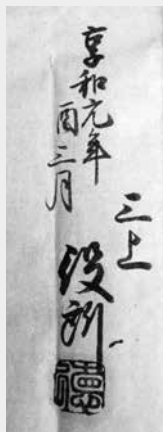 享和元年
酉三月
三上
役所